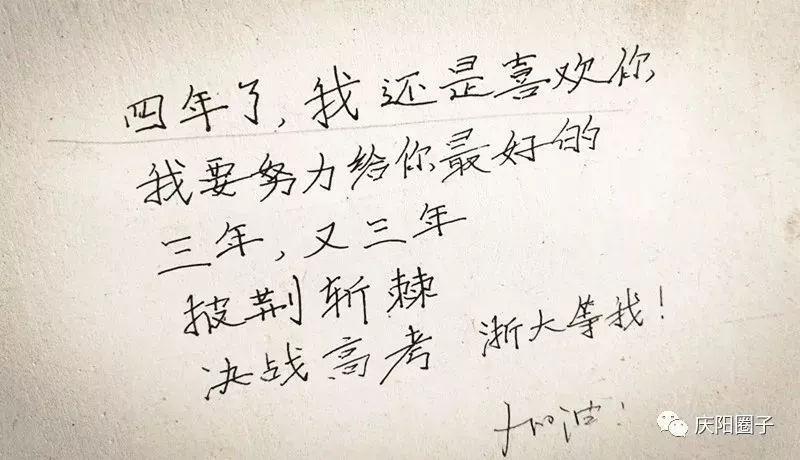 四年了,我还是喜欢你
我要努力给你最好的
三年,又三年
披荆斩棘
决战高考 浙大等我!
加油!
庆阳圈子